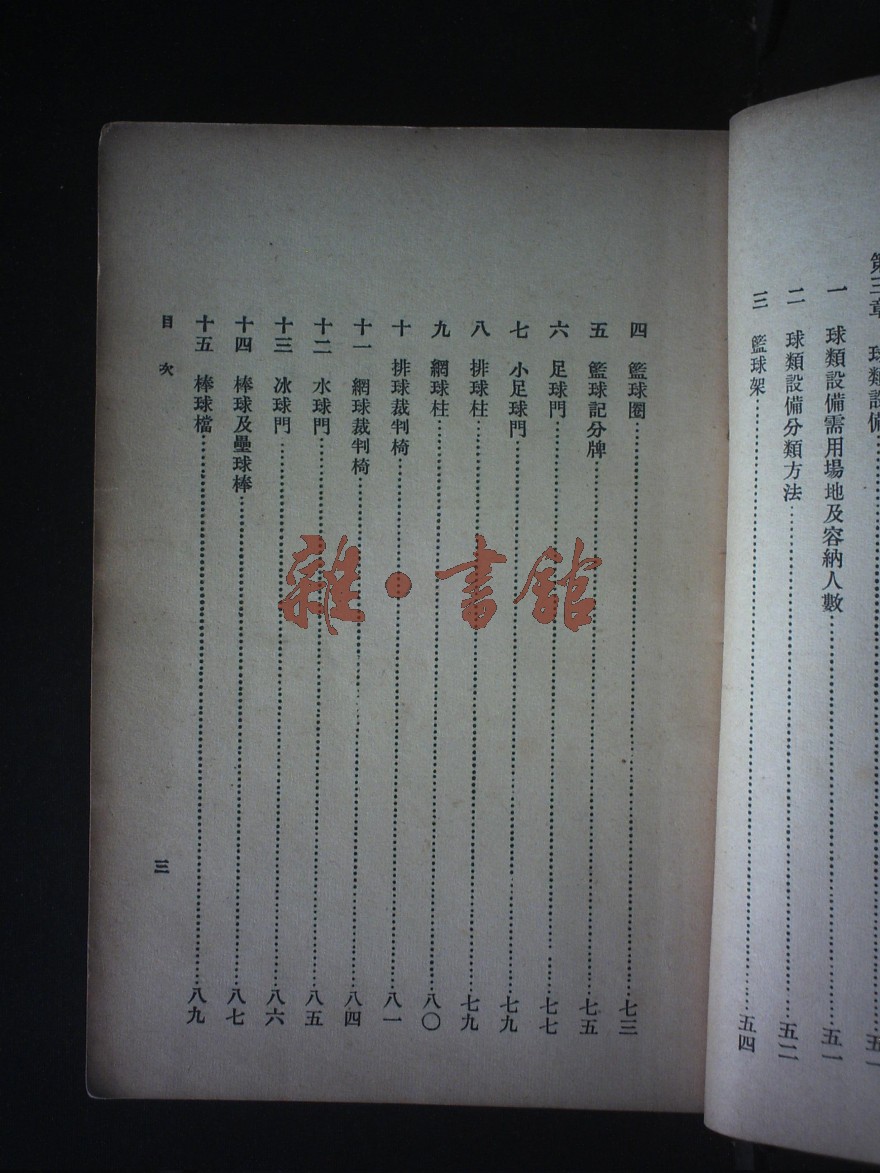 第三章　球類設備……五一
一　球類設備需用場地及容納人數……五一
二　球類設備分類方法……五二
三　籃球架……五四
四　籃球圈……七三
五　籃球記分牌……七五
六　足球門……七七
七　小足球門……七九
八　排球柱……七九
九　網球柱……八〇
十　排球裁判椅……八一
十一　網球裁判椅……八四
十二　水球門……八五
十三　冰球門……八六
十四　棒球及壘球棒……八七
十五　棒球檔……八九
目次
三
雜·書館